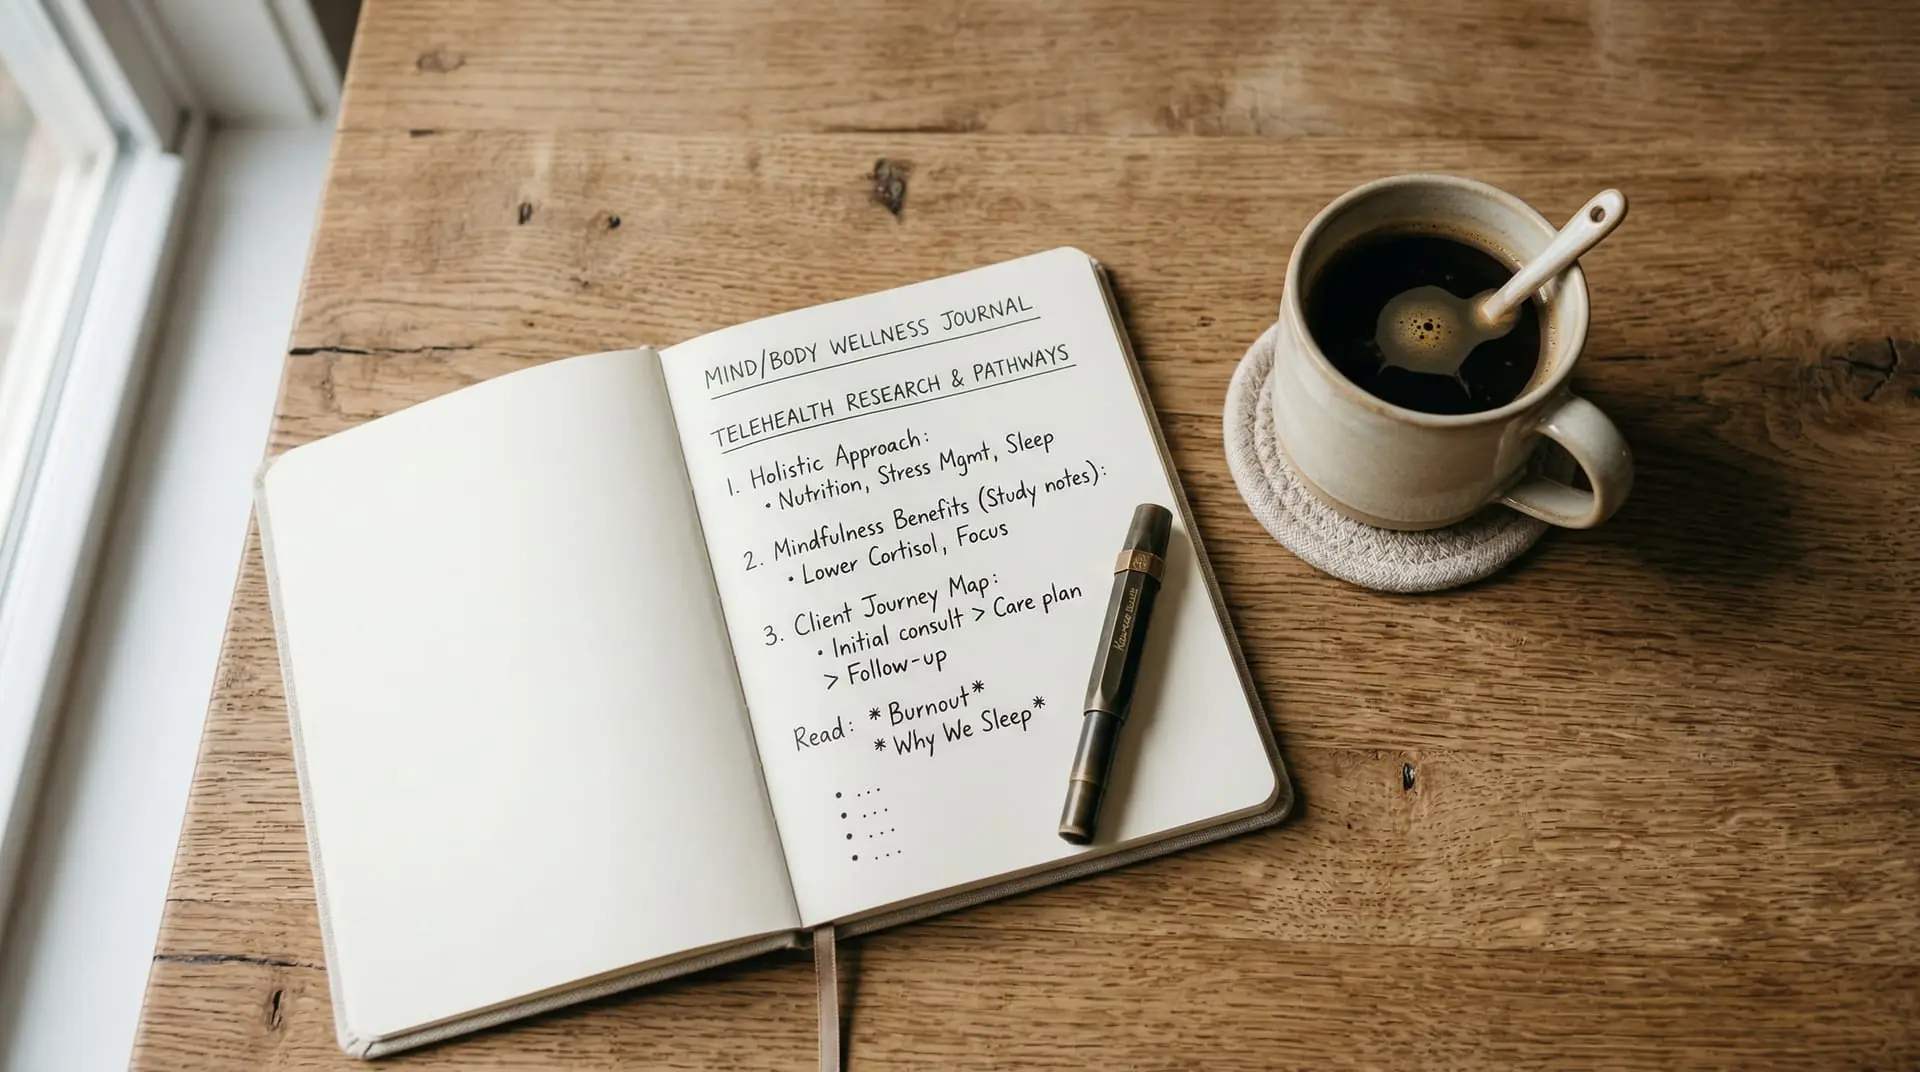 MIND/BODY WELLNESS JOURNAL
TELEHEALTH RESEARCH & PATHWAYS
1. Holistic Approach:
• Nutrition, Stress Mgmt, Sleep
2. Mindfulness Benefits (Study notes):
• Lower Cortisol, Focus
3. Client Journey Map:
• Initial consult > Care plan
> Follow-up
Read: * Burnout*
* Why We Sleep*
• ...
• ...
• ...
• ...